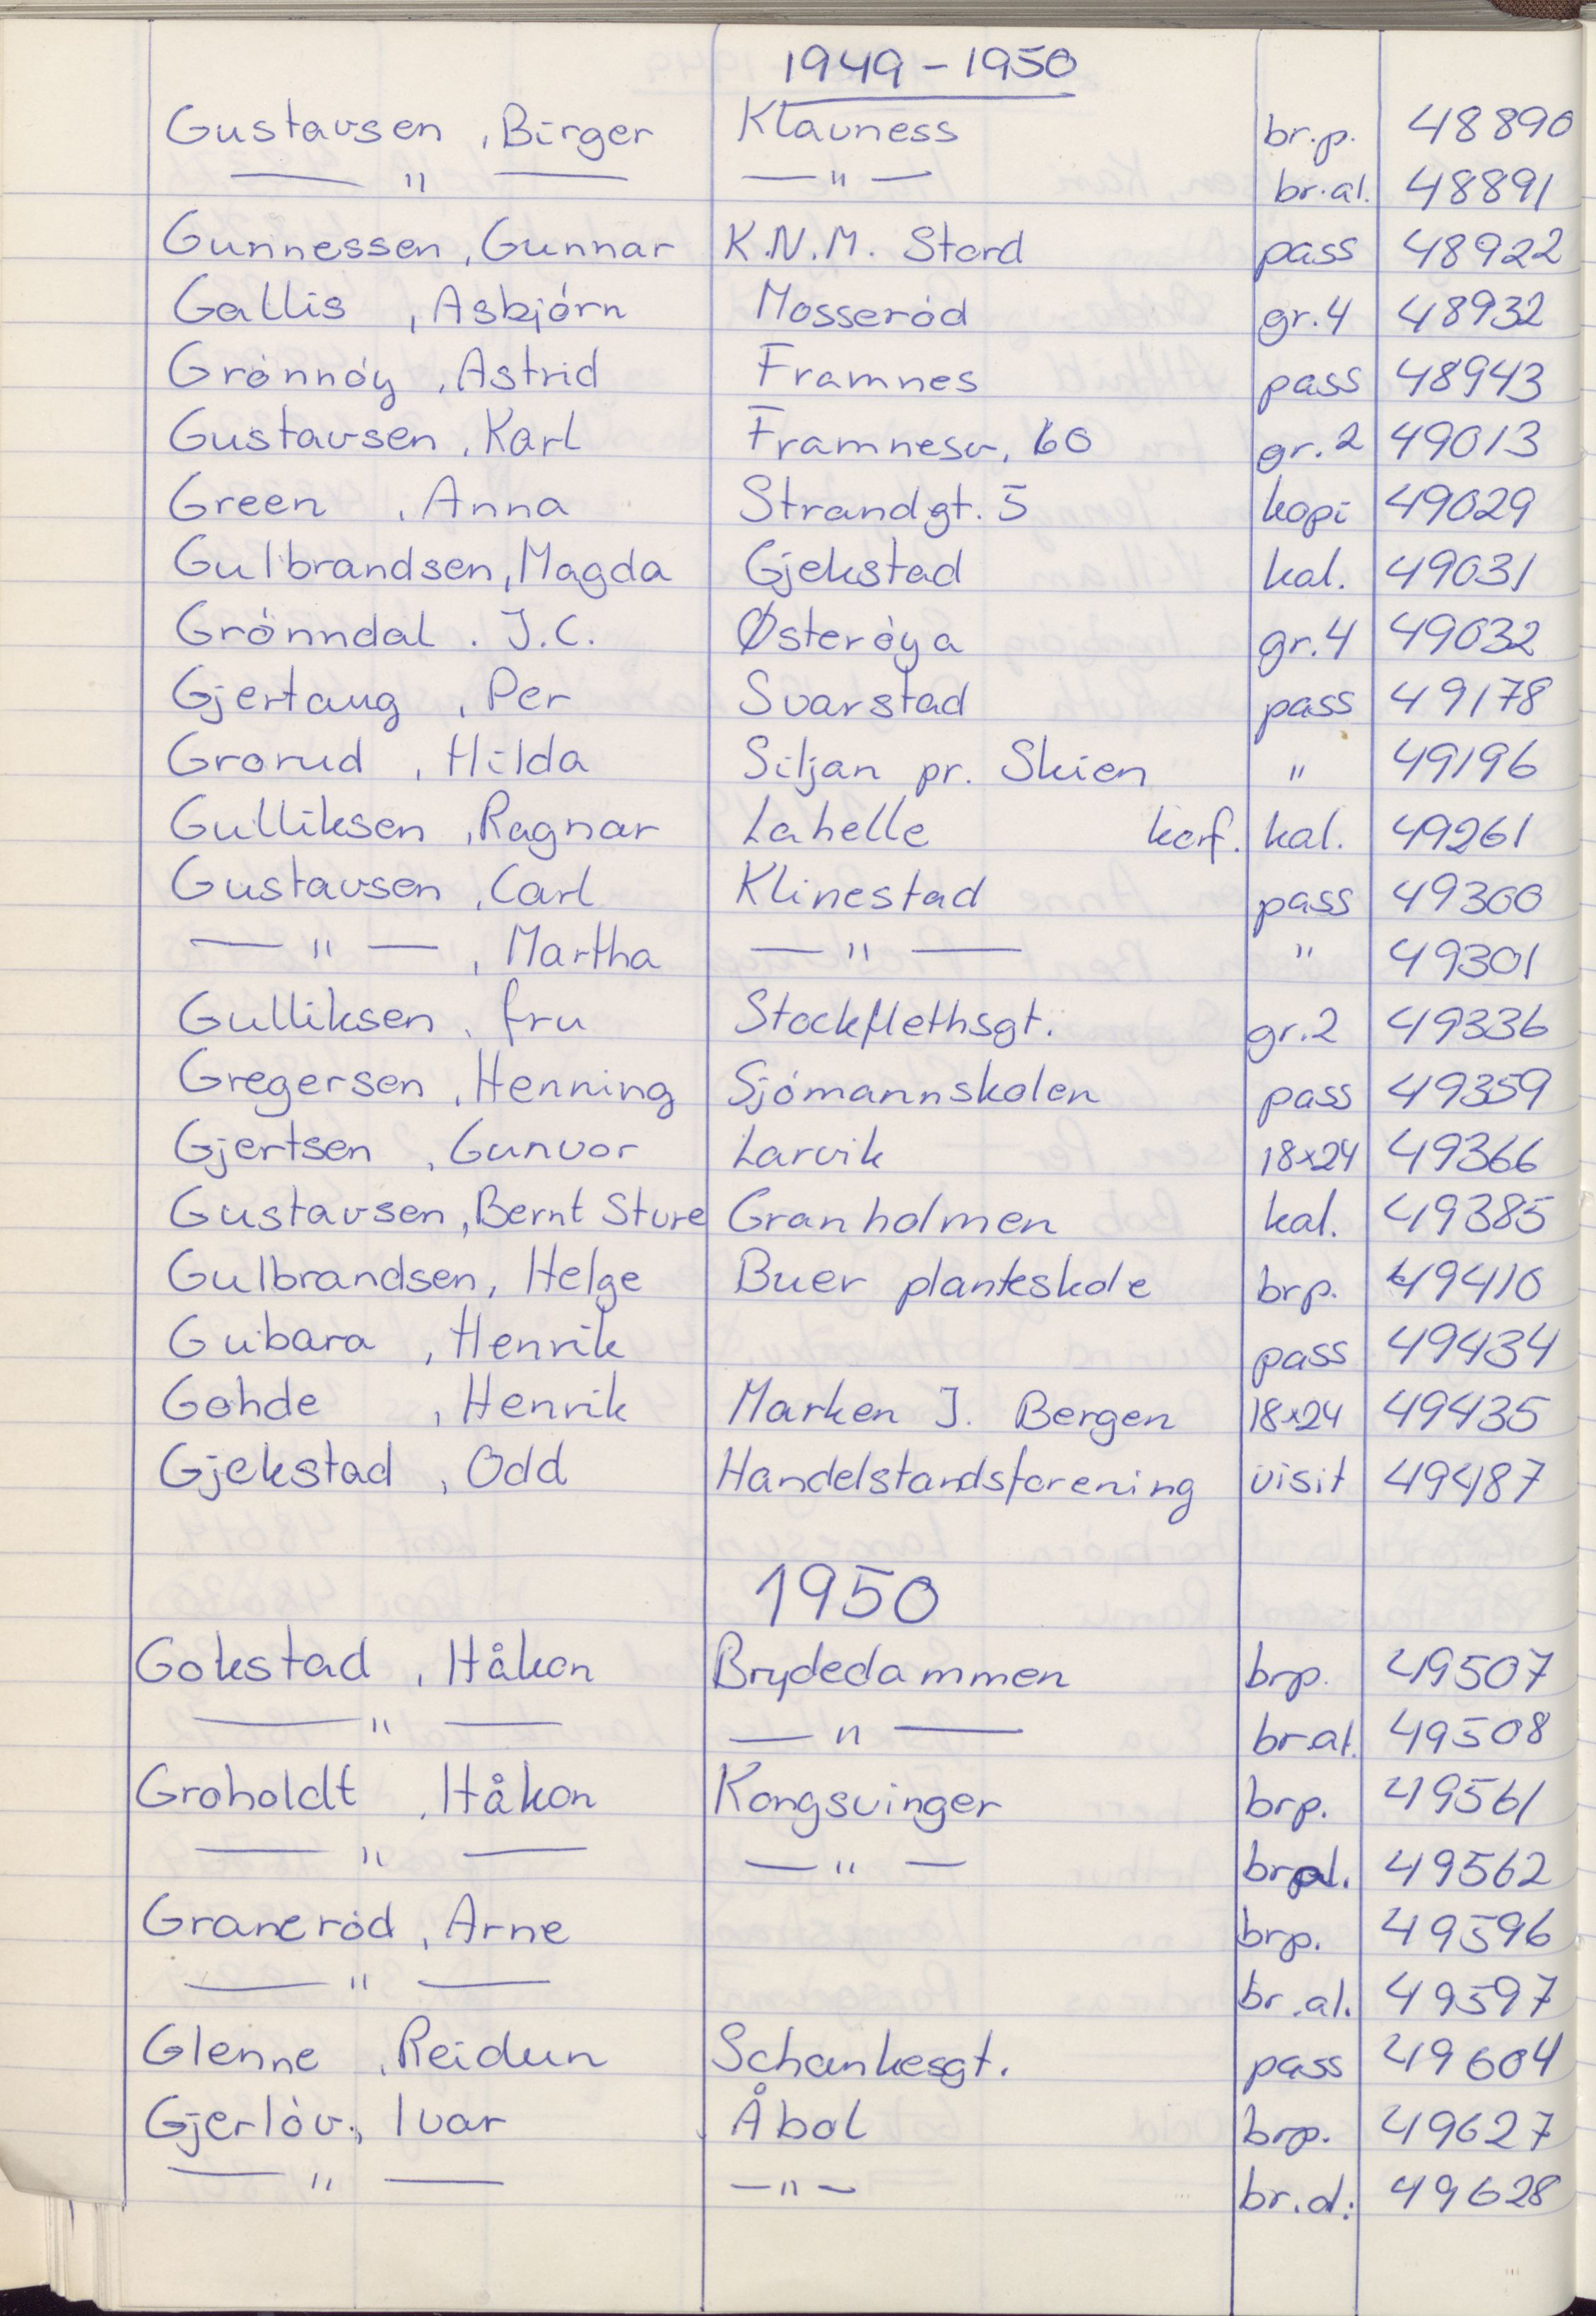 1949 - 1950
Gustavsen , Birger Klavness br.p. 48890
— " — — " — br.al. 48891
Gunnessen , Gunnar K.N.M. Stord pass 48922
Gallis , Asbjórn Mosseród gr.4 48932
Grónnóy , Astrid Framnes pass 48943
Gustavsen , Karl Framnesv. 60 gr.2 49013
Green , Anna Strandgt. 5 kopi 49029
Gulbrandsen, Magda Gjekstad kal. 49031
Grónndal . J.C. Østeróya gr.4 49032
Gjertaug , Per Svarstad pass 49178
Grorud , Hilda Siljan pr. Skien " 49196
Gulliksen , Ragnar Lahelle kof. kal. 49261
Gustavsen , Carl Klinestad pass 49300
— " — , Martha — " — " 49301
Gulliksen , fru Stockflethsgt. gr.2 49336
Gregersen , Henning Sjómannskolen pass 49359
Gjertsen , Gunvor Larvik 18x24 49366
Gustavsen, Bernt Sture Granholmen kal. 49385
Gulbrandsen, Helge Buer planteskole brp. 49410
Gubara , Henrik pass 49434
Gohde , Henrik Marken J. Bergen 18x24 49435
Gjekstad , Odd Handelstandsforening visit 49487
1950
Gokstad , Håkon Brydedammen brp. 49507
— " — — " — br.al. 49508
Groholdt , Håkon Kongsvinger brp. 49561
— " — — " — br.al. 49562
Graneród , Arne brp. 49596
— " — br.al. 49597
Glenne , Reidun Schankesgt. pass 49604
Gjerlóv., Ivar Åbol brp. 49627
— " — — " — br.al. 49628